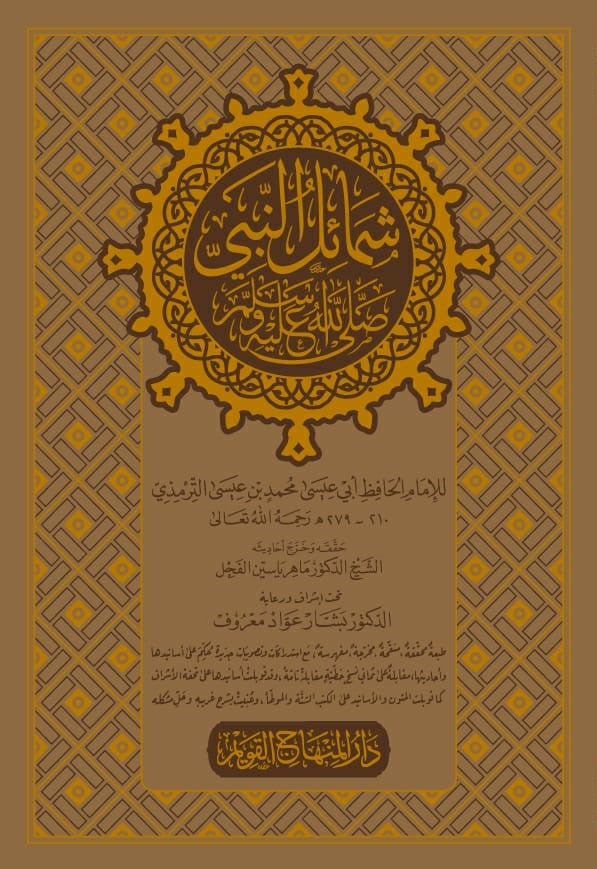 شَمَائِلُ النَّبِيِّ
صَلَّى اللهُ عَلَيْهِ وَسَلَّمَ
لِلإِمَامِ الحَافِظِ أَبِي عِيسَى مُحَمَّدِ بْنِ عِيسَى التِّرْمِذِيِّ
٢١٠ - ٢٧٩ هـ رَحِمَهُ اللهُ تَعَالَى
حَقَّقَهُ وَخَرَّجَ أَحَادِيثَه
الشَّيْخُ الدُّكْتُورُ مَاهِر يَاسِين الفَحْل
تحت إشراف ورعاية
الدكتور بَشَّار عَوَّاد مَعْرُوف
طبعةٌ محقّقةٌ، منقّحةٌ، مخرّجةٌ، مفهرسةٌ، مع استدراكات وتصويبات جديدة وحكم على أسانيدها
وأحاديثها، مقابلةٌ على ثماني نسخ خطّيّة مقابلةً تامّةً، وقد قوبلت أسانيدها على تحفة الأشراف
كما قوبلت المتون والأسانيد على الكتب الستّة والموطأ، وعُنيت بشرح غريبه وحلّ مشكله
دَارُ المِنْهَاجِ القَوِيْمِ